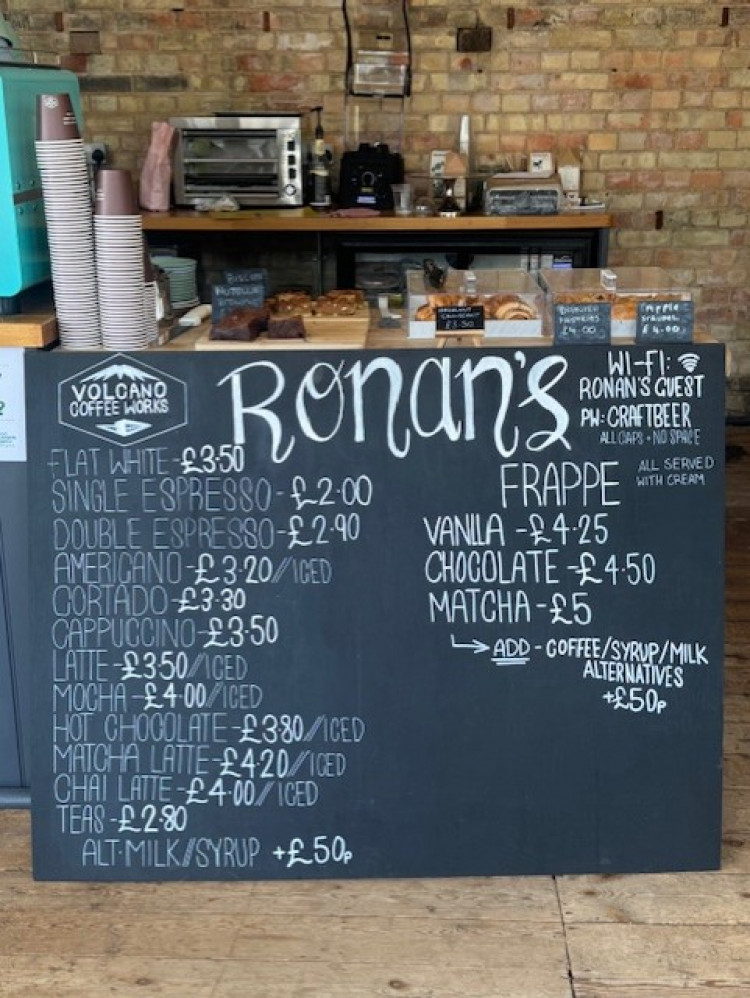 VOLCANO
COFFEE WORKS
RONAN'S
WI-FI:
RONAN'S GUEST
PW: CRAFTBEER
ALL CAPS + NO SPACE
FLAT WHITE-£3·50
SINGLE ESPRESSO-£2·00
DOUBLE ESPRESSO-£2·90
AMERICANO-£3·20//ICED
CORTADO-£3·30
CAPPUCCINO-£3·50
LATTE-£3·50//ICED
MOCHA-£4·00//ICED
HOT CHOCOLATE-£3·80//ICED
MATCHA LATTE-£4·20//ICED
CHAI LATTE-£4·00//ICED
TEAS-£2·80
ALT·MILK//SYRUP +£50p
FRAPPE
ALL SERVED
WITH CREAM
VANILLA-£4·25
CHOCOLATE-£4·50
MATCHA-£5
ADD - COFFEE/SYRUP/MILK
ALTERNATIVES
+£50p
£3·50
£4·00
£4·00